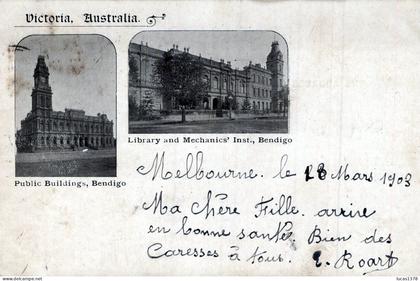 Victoria, Australia.
Library and Mechanics' Inst., Bendigo
Public Buildings, Bendigo
Melbourne. le 28 Mars 1903
Ma Chère Fille. arrive
en bonne santé. Bien des
Caresses à tous. E. Roart
lucas1378